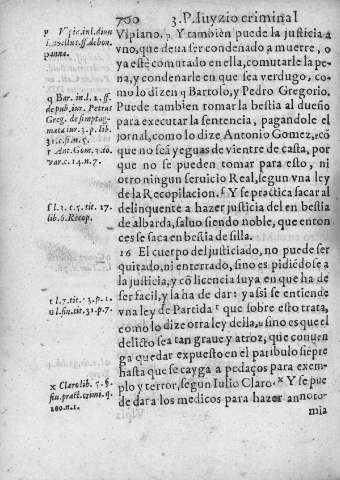 700 3.P. Iuyzio criminal
Vlpiano. ᵖ Y tambien puede la justicia a
vno, que deua ser condenado a muerte, o
ya este cõmutado en ella, comutarle la pe-
na, y condenarle en que sea verdugo, co-
mo lo dizen q Bartolo, y Pedro Gregorio.
Puede tambien tomar la bestia al dueño
para executar la sentencia, pagandole el
jornal, como lo dize Antonio Gomez, r cõ
que no seã yeguas de vientre de casta, por
que no se pueden tomar para esto, ni
otro ningun seruicio Real, segun vna ley
de la Recopilacion. ſ Y se practica sacar al
delinquente a hazer justicia del en bestia
de albarda, saluo siendo noble, que enton
ces se saca en bestia de silla.
16 El cuerpo del justiciado, no puede ser
quitado, ni enterrado, sino es pidiẽdose a
la justicia, y cõ licencia suya en que ha de
ser facil, y la ha de dar: y assi se entiende
vna ley de Partida t que sobre esto trata,
como lo dize otra ley della, u sino es que el
delicto sea tan graue y atroz, que conuen
ga quedar expuesto en el patibulo siẽpre
hasta que se cayga a pedaços para exem-
plo y terror, segun Iulio Claro. x Y se pue
de dar a los medicos para hazer annoto-
mia
p
ff. de bon.
q Bar. in l. 2. ff.
de pub. iur. Petrus
Greg. de sintag-
mata iur. 3. p. lib.
31. c. fi n. 5.
r Ant. Gom. 3. to.
var. c. 14. n. 7.
ſ l. 1. c. 5. tit. 17.
lib. 6. Recop.
t l. 7. tit. 13. p. 1.
u l. fin. tit. 31. p. 7.
x Claro lib. 5. §.
fin. pract. crimi. q.
100. n. 1.